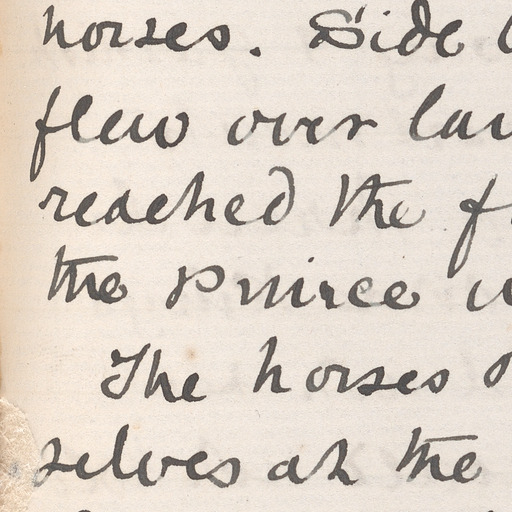 horses. Side
flew over
reached the
the Prince
The horses
selves at the